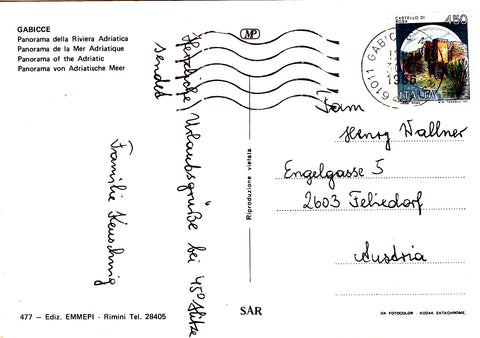 GABICCE
Panorama della Riviera Adriatica
Panorama de la Mer Adriatique
Panorama of the Adriatic
Panorama von Adriatische Meer
MP
CASTELLO DI
450
ITALIA
61011 GABICCE
Herzliche Urlaubsgrüße bei 45° Hitze
sendet
Familie
Riproduzione vietata
Fam
Henry Wallner
Engelgasse 5
2603 Felixdorf
Austria
477 – Ediz. EMMEPI - Rimini Tel. 28405
SAR
DA FOTOCOLOR - KODAK EKTACHROME.